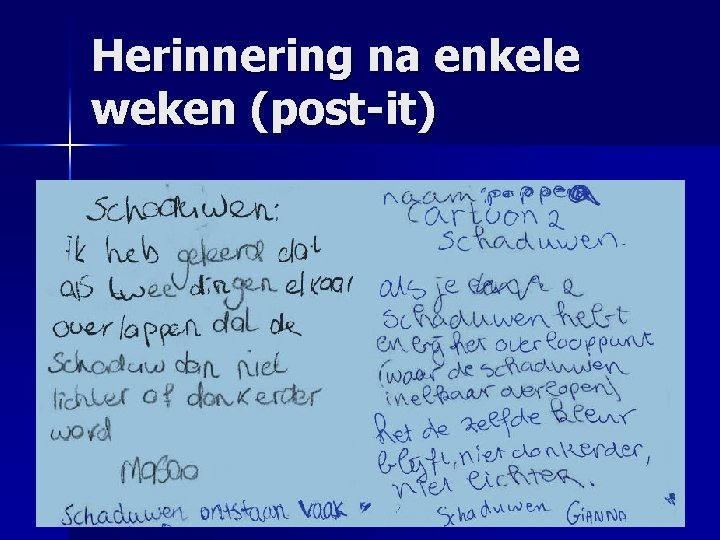 Herinnering na enkele
weken (post-it)
Schaduwen:
ik heb geleerd dat
als twee dingen elkaar
overlappen dat de
Schaduw dan niet
lichter of donkerder
word
naam:
Cartoon 2
Schaduwen.
als je 2
schaduwen hebt
en bij het overlooppunt
(waar de schaduwen
inelkaar overlopen)
het de zelfde kleur
blijft, niet donkerder,
niet lichter.
Schaduwen ontstaan vaak
Schaduwen GIANNA